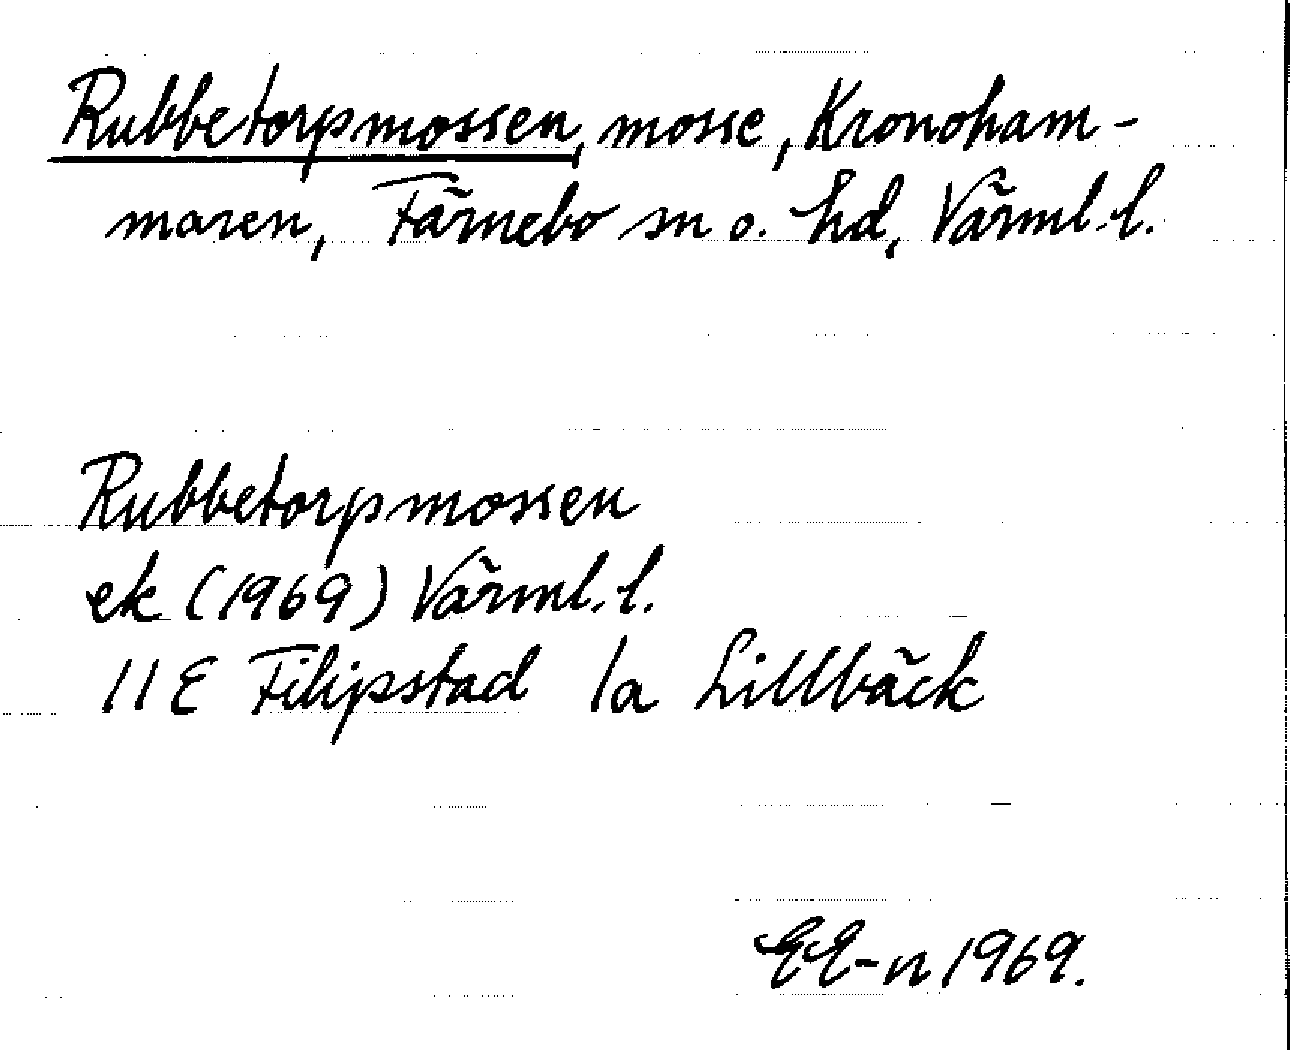 Rubbetorpmossen, mosse, Kronoham-
maren, Färnebo sn o. hd, Värml. l.
Rubbetorpmossen
ek (1969) Värml. l.
11 E Filipstad 1a Lillbäck
EE-n 1969.